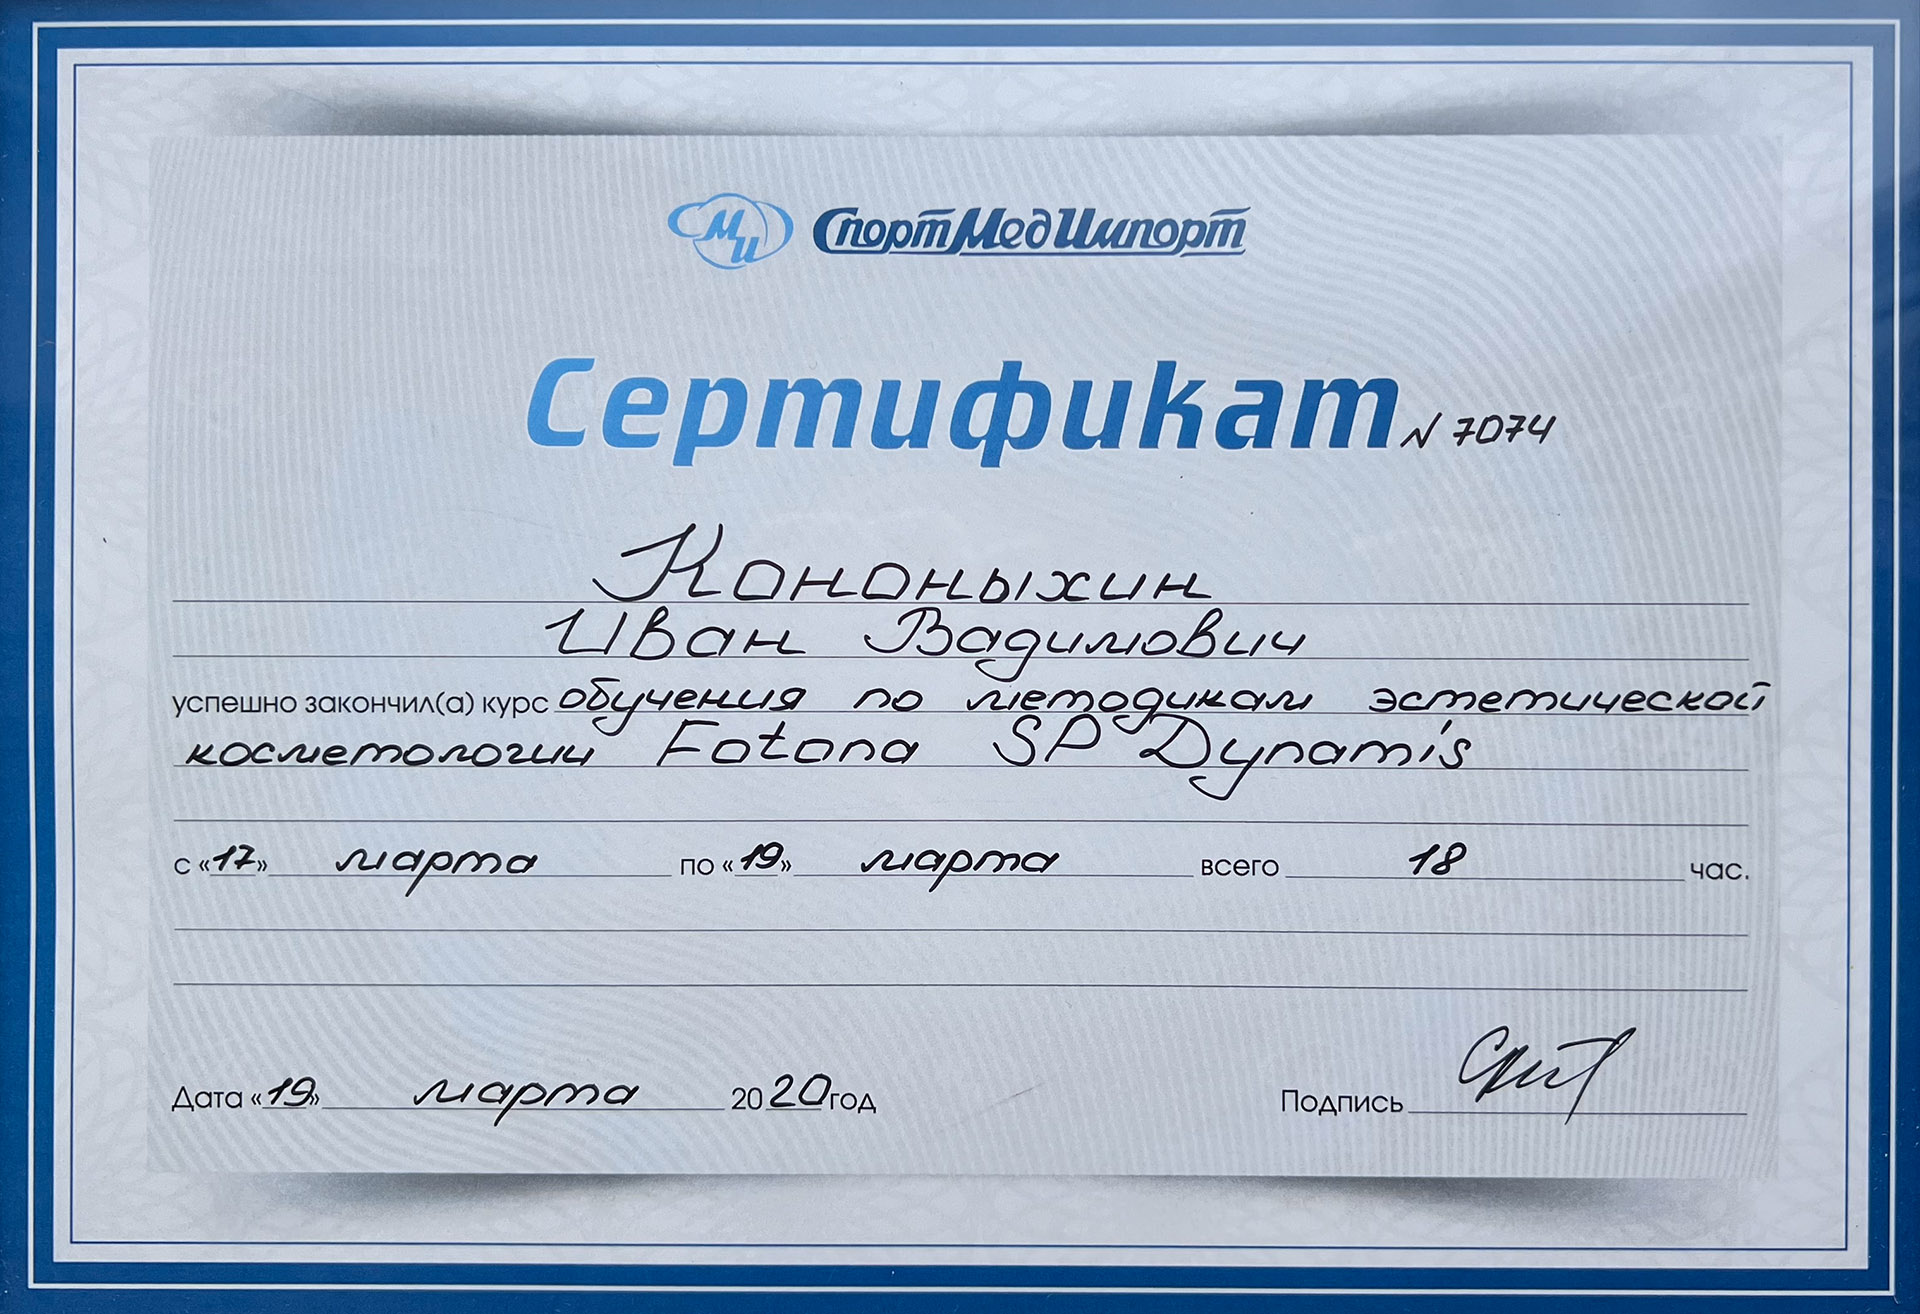 МИ СпортМедИмпорт
Сертификат N 7074
Кононыхин
Иван Вадимович
успешно закончил(а) курс обучения по методикам эстетической
косметологии Fotona SP Dynamis
с «17» марта по «19» марта всего 18 час.
Дата «19» марта 2020 год Подпись